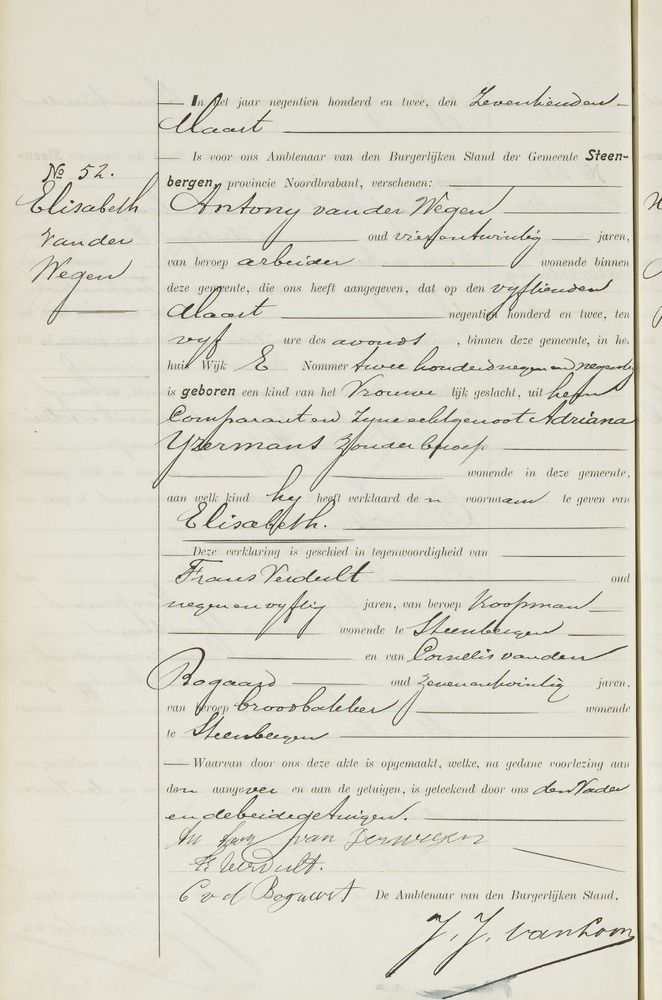 In het jaar negentien honderd en twee, den Zeventienden
Maart
Is voor ons Ambtenaar van den Burgerlijken Stand der Gemeente Steen-
bergen, provincie Noordbrabant, verschenen:
No 52.
Elisabeth
van der
Wegen
Antony van der Wegen
oud vierentwintig jaren,
van beroep arbeider wonende binnen
deze gemeente, die ons heeft aangegeven, dat op den vyftienden
Maart negentien honderd en twee, ten
vyf ure des avonds, binnen deze gemeente, in he.
huis Wijk E Nommer twee honderd negen en negentig
is geboren een kind van het Vrouwe lijk geslacht, uit hem
Comparant en Zyne echtgenoot Adriana
Yzermans Zonder beroep
wonende in deze gemeente,
aan welk kind hy heeft verklaard de n voornaam te geven van
Elisabeth.
Deze verklaring is geschied in tegenwoordigheid van
Frans Verdult oud
negen en vyftig jaren, van beroep Koopman
wonende te Steenbergen
en van Cornelis van den
Bogaard oud Zevenentwintig jaren,
van beroep broodbakker wonende
te Steenbergen
Waarvan door ons deze akte is opgemaakt, welke, na gedane voorlezing aan
den aangever en aan de getuigen, is geteekend door ons den Vader
en de beide getuigen.
van der wegen
F. Verdult.
C v d Bogaert De Ambtenaar van den Burgerlijken Stand,
J. J. van Loon